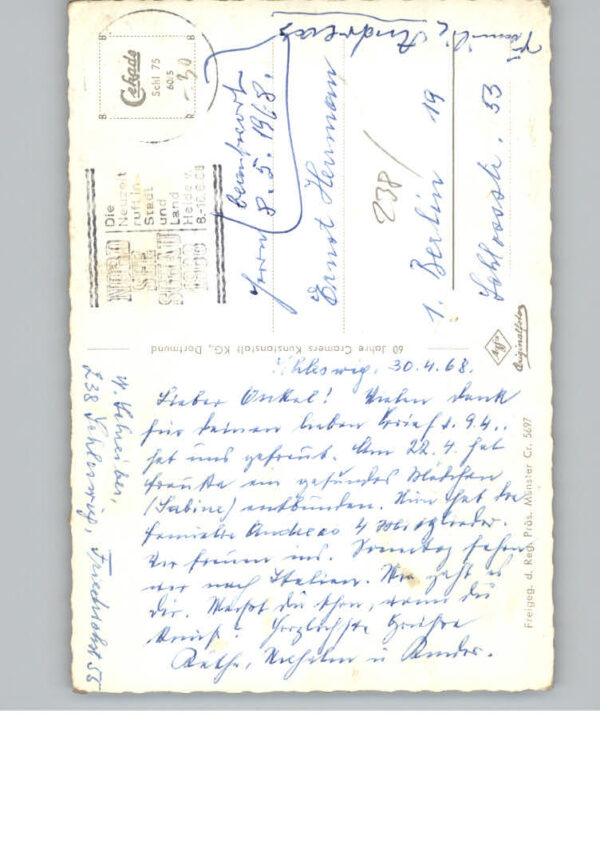 Schleswig, 30.4.68.
Lieber Onkel! Vielen Dank
für deinen lieben Brief v. 9.4..
hat uns gefreut. Am 22.4. hat
ein gesundes Mädchen
(Sabine) entbunden. Nun hat die
Familie Andreas 4 Mitglieder.
Wir freuen uns. Sonntag fahren
wir nach Italien. Wie geht es
dir. Weißt du schon, wann du
kommst? Herzlichste Grüße
Käthe, Wilhelm u. Kinder.
W. Schreiber,
238 Schleswig, 55
Familie Andreas
beantwortet
8.5.1968.
Herrn
Ernst Herrmann
238/
1. Berlin 19
Schlossstr. 53
Cekade
Schl 75
60:5
30
B
B
R
Die
Neuzeit
ruft in
Stadt
und
Land
Heide
NORD
SEE
SCHAU
1968
60 Jahre Cramers Kunstanstalt KG., Dortmund
Agfa
Originalfoto
Freigeg. d. Reg. Präs. Münster Cr. 5697